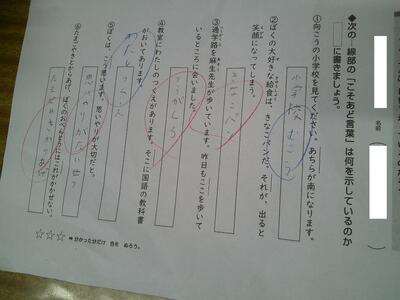 ◆次の 線部の「こそあど言葉」は何を示しているのか
に書きましょう。
名前
①向こうの小学校を見てください。あちらが南になります。
②ぼくの大好きな給食は、きなこパンだ。それが、出ると
笑顔になってしまう。
③通学路を麻生先生が歩いています。昨日もここを歩いて
いるところに会いました。
④教室にわたしのつくえがあります。そこに国語の教科書
がおいてあります。
⑤ぼくは、こう思います。思いやりが大切だと。
⑥たまごやきとからあげ、ぼくのおべんとうにはこれがかかせない。
☆☆☆ ⇒分かった分だけ 色を ぬろう。